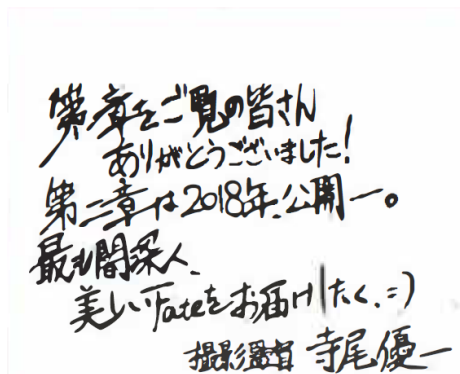 第一章をご覧の皆さん
ありがとうございました!
第二章は2018年、公開ー。
最も闇深く、
美しいFateをお届けしたく、=)
撮影監督 寺尾優一